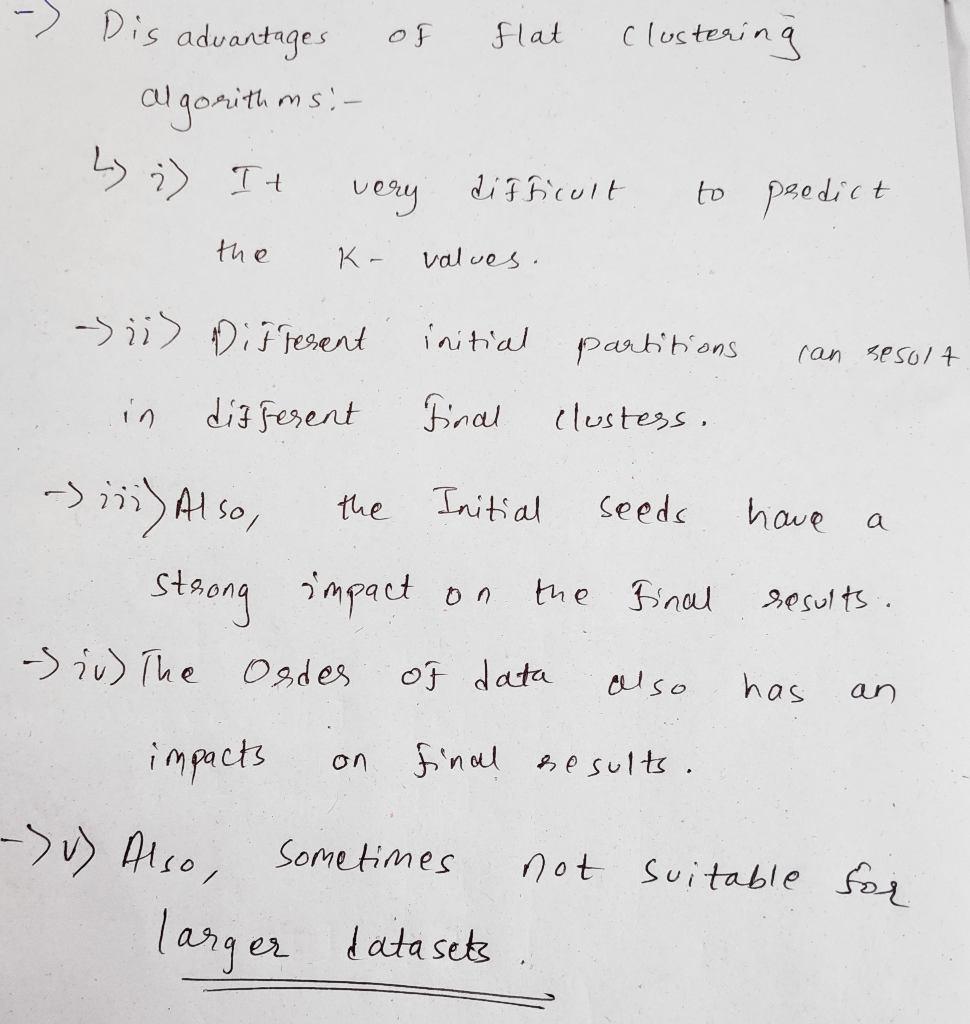 -> Disadvantages of flat clustering
algorithms:-
↳ i) It very difficult to predict
the K- values.
-> ii) Different initial partitions can result
in different final clusters.
-> iii) Also, the Initial seeds have a
strong impact on the final results.
-> iv) The Order of data also has an
impacts on final results.
-> v) Also, sometimes not suitable for
larger datasets.